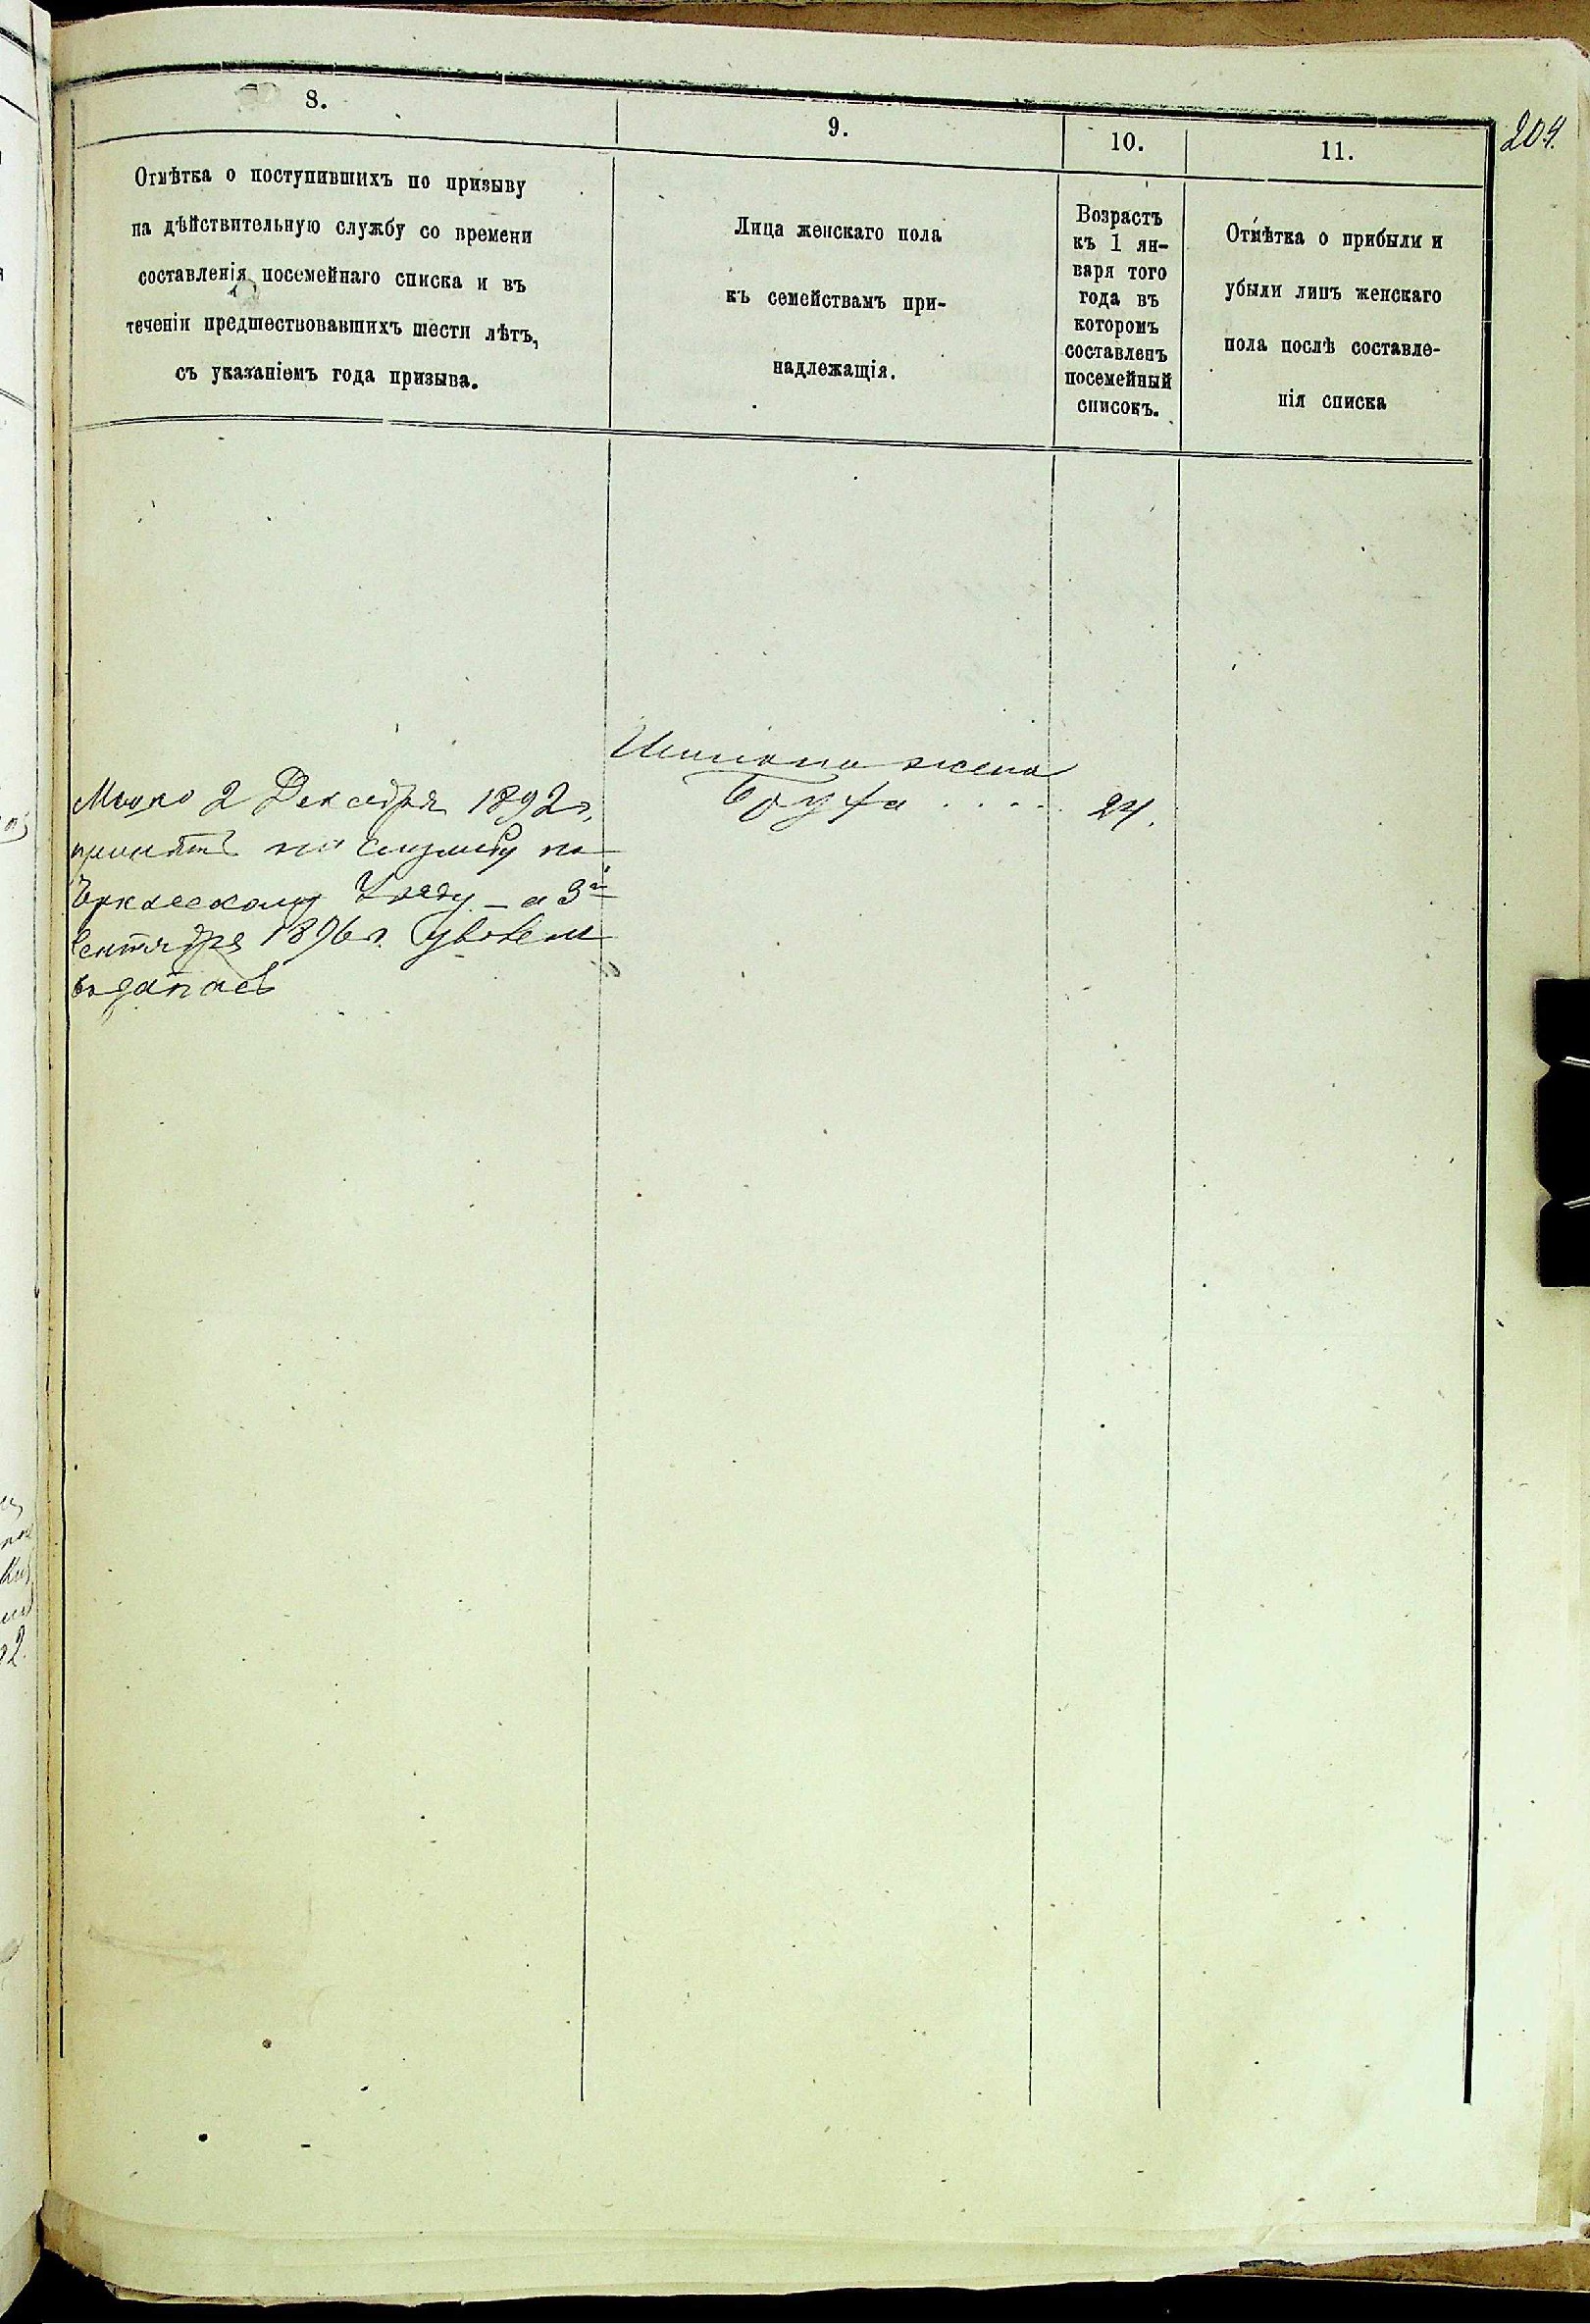 204.
8.
Отмѣтка о поступившихъ по призыву
на дѣйствительную службу со времени
составленія посемейнаго списка и въ
теченіи предшествовавшихъ шести лѣтъ,
съ указаніемъ года призыва.
9.
Лица женскаго пола
къ семействамъ при-
надлежащія.
10.
Возрастъ
къ 1 ян-
варя того
года въ
которомъ
составленъ
посемейный
списокъ.
11.
Отмѣтка о прибыли и
убыли лицъ женскаго
пола послѣ составле-
нія списка
2 Декабря 1892 г.
принятъ на службу по
Черкасскому Уѣзду – а 3го
Сентября 1896 г. уволен
въ запасъ
жена
24.